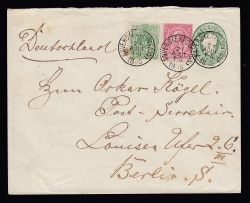 Deutschland
Herrn Oskar Kögel.
Post-Secretair.
Louisen Ufer 2.C.
III
Berlin. S.